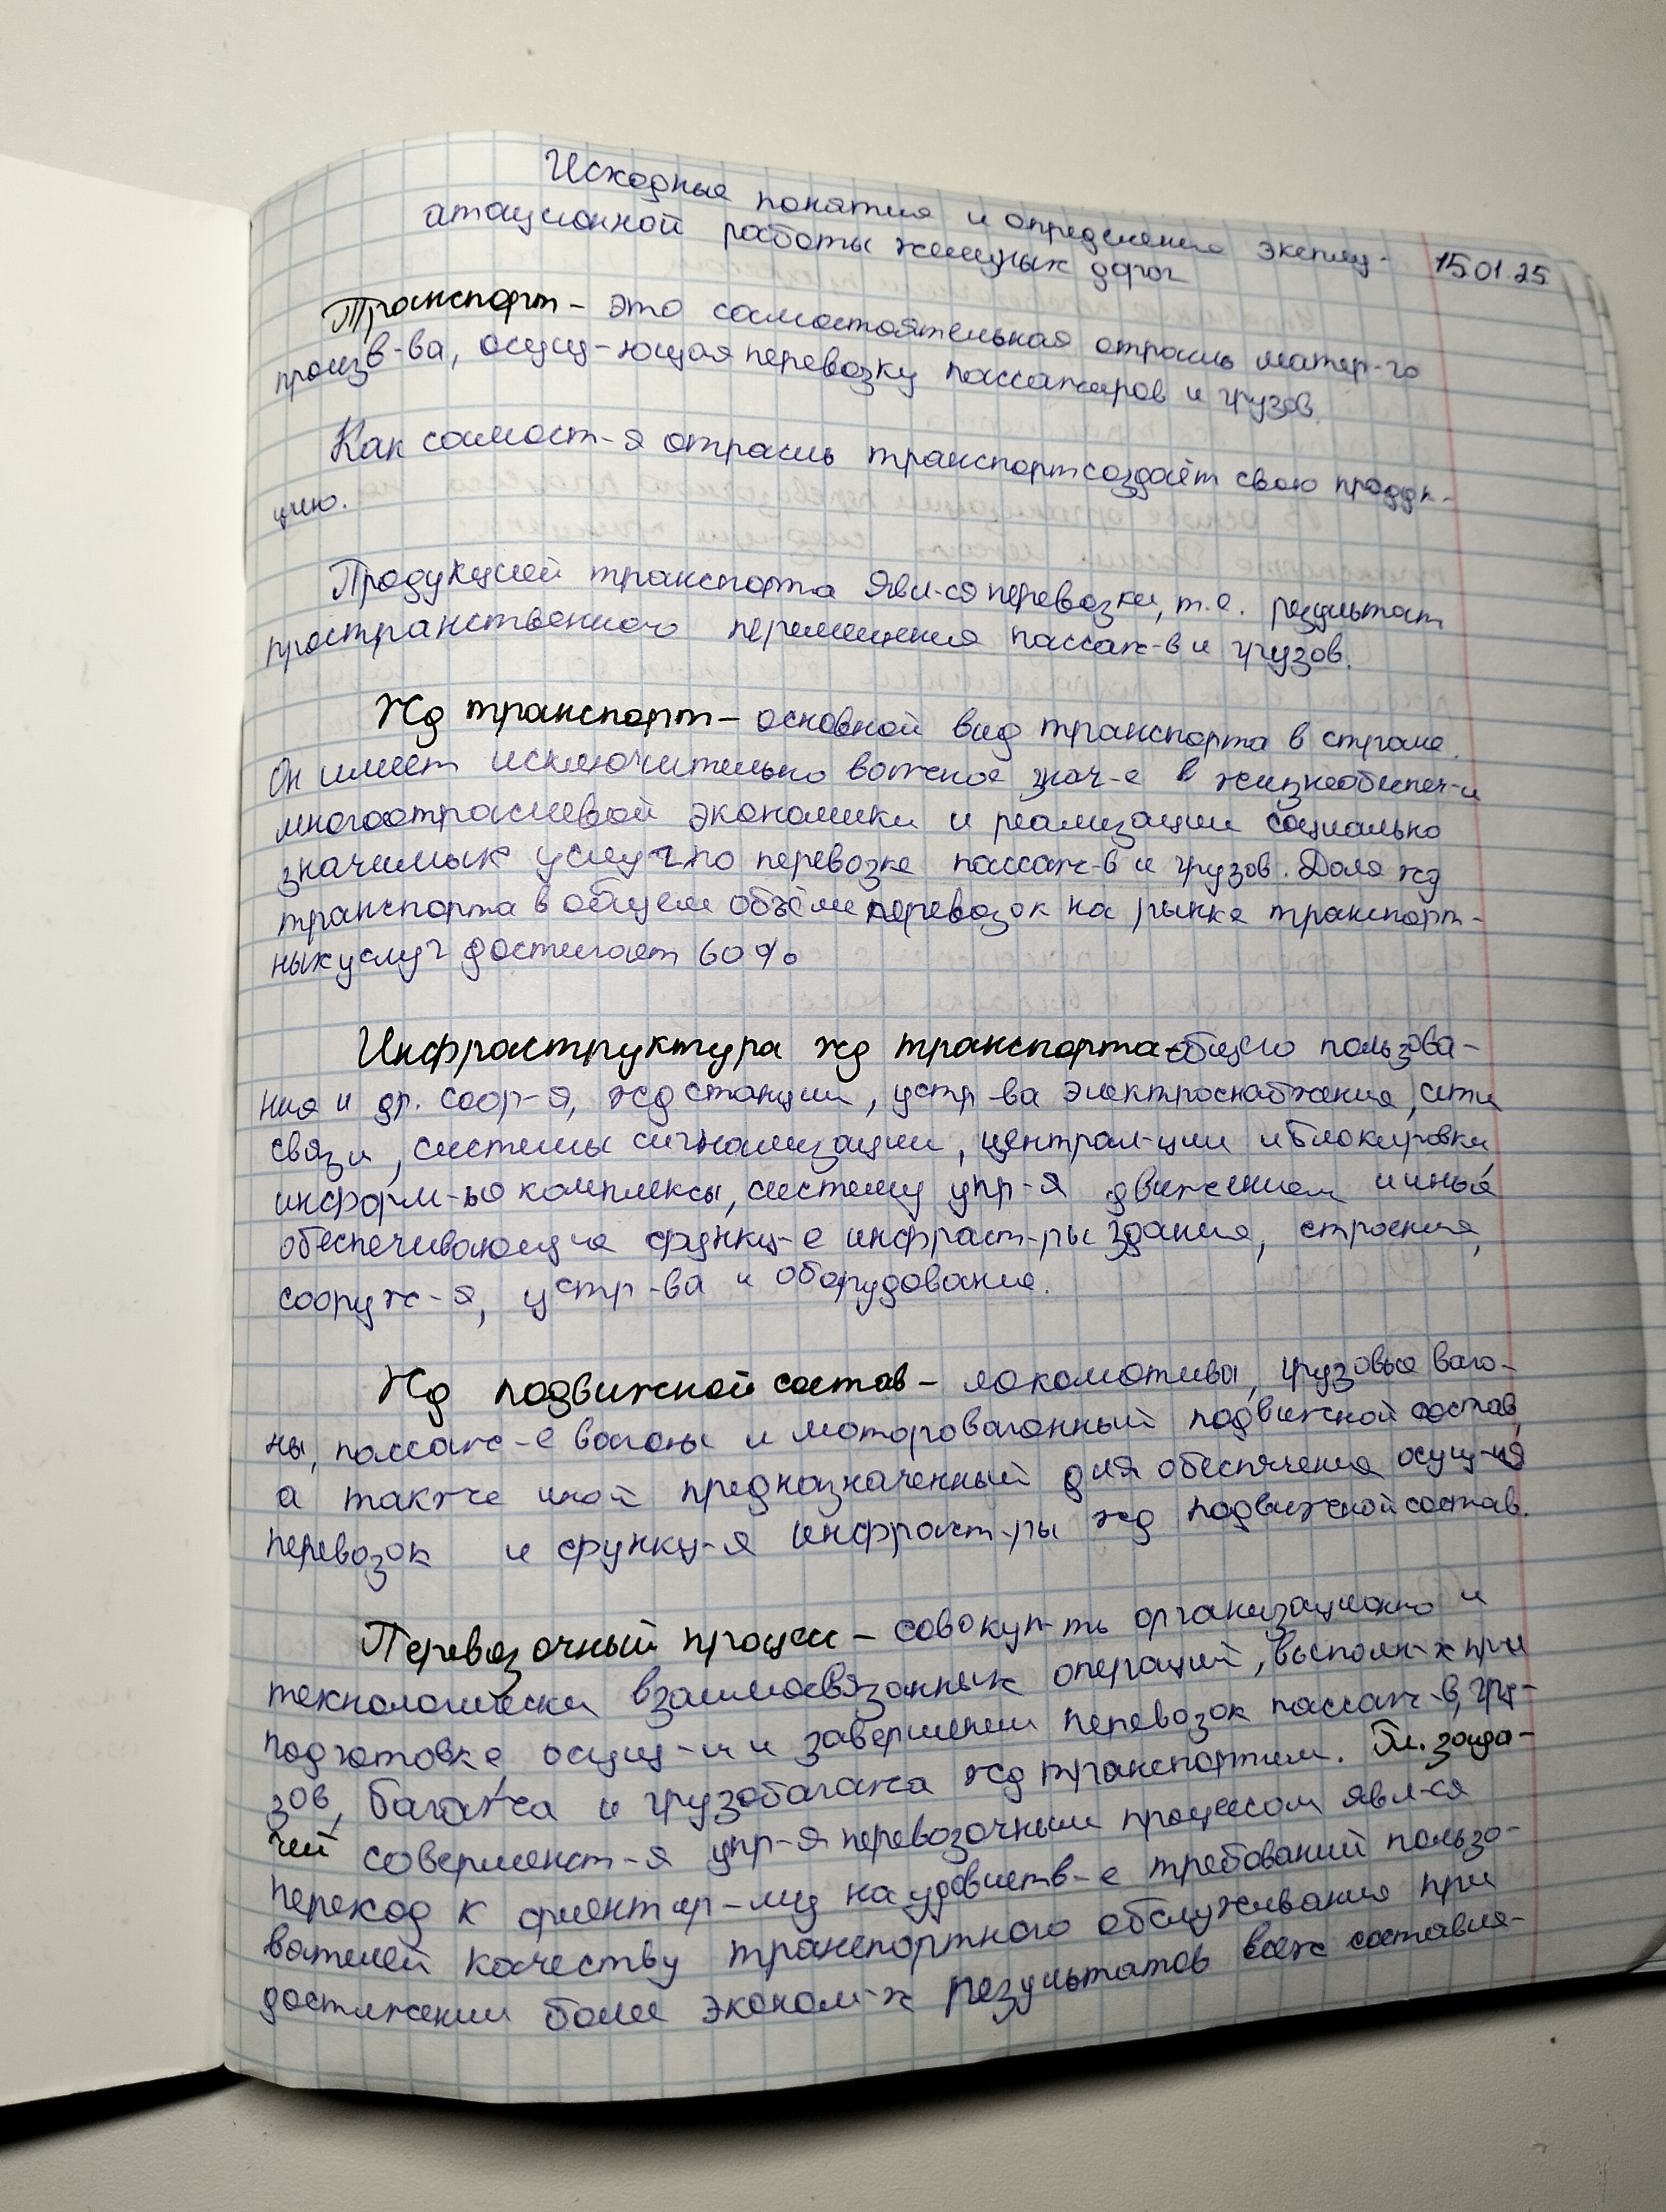 Исходные понятия и определения эксплу-
15.01.25
атационной работы железных дорог
Транспорт – это самостоятельная отрасль матер-го
произв-ва, осущ-ющая перевозку пассажиров и грузов.
Как самост-я отрасль транспорт создаёт свою продук-
цию.
Продукцией транспорта явл-ся перевозки, т.е. результат
пространственного перемещения пассаж-в и грузов.
Жд транспорт – основной вид транспорта в стране.
Он имеет исключительно важное знач-е в жизнеобеспеч-и
многоотраслевой экономики и реализации социально
значимых услуг по перевозке пассаж-в и грузов. Доля жд
транспорта в общем объёме перевозок на рынке транспорт-
ных услуг достигает 60%
Инфраструктура жд транспорта общего пользова-
ния и др. соор-я, жд станции, устр-ва электроснабжения, сети
связи, системы сигнализации, централ-ции и блокировки,
информ-ые комплексы, систему упр-я движением и иные
обеспечивающие функц-е инфраст-ры здания, строения,
сооруж-я, устр-ва и оборудование.
Жд подвижной состав – локомотивы, грузовые ваго-
ны, пассаж-е вагоны и моторовагонный подвижной состав,
а также иной предназначенный для обеспечения осущ-ия
перевозок и функц-я инфраст-ры жд подвижной состав.
Перевозочный процесс – совокуп-ть организационно и
технологически взаимосвязанных операций, выполн-х при
подготовке, осущ-и и завершении перевозок пассаж-в, гру-
зов, багажа и грузобагажа жд транспортом. Гл. зада-
чей совершенст-я упр-я перевозочным процессом явл-ся
переход к ориентир- на удовлетв-е требований пользо-
вателей качеству транспортного обслуживания при
достижении более эконом-х результатов всех составля-